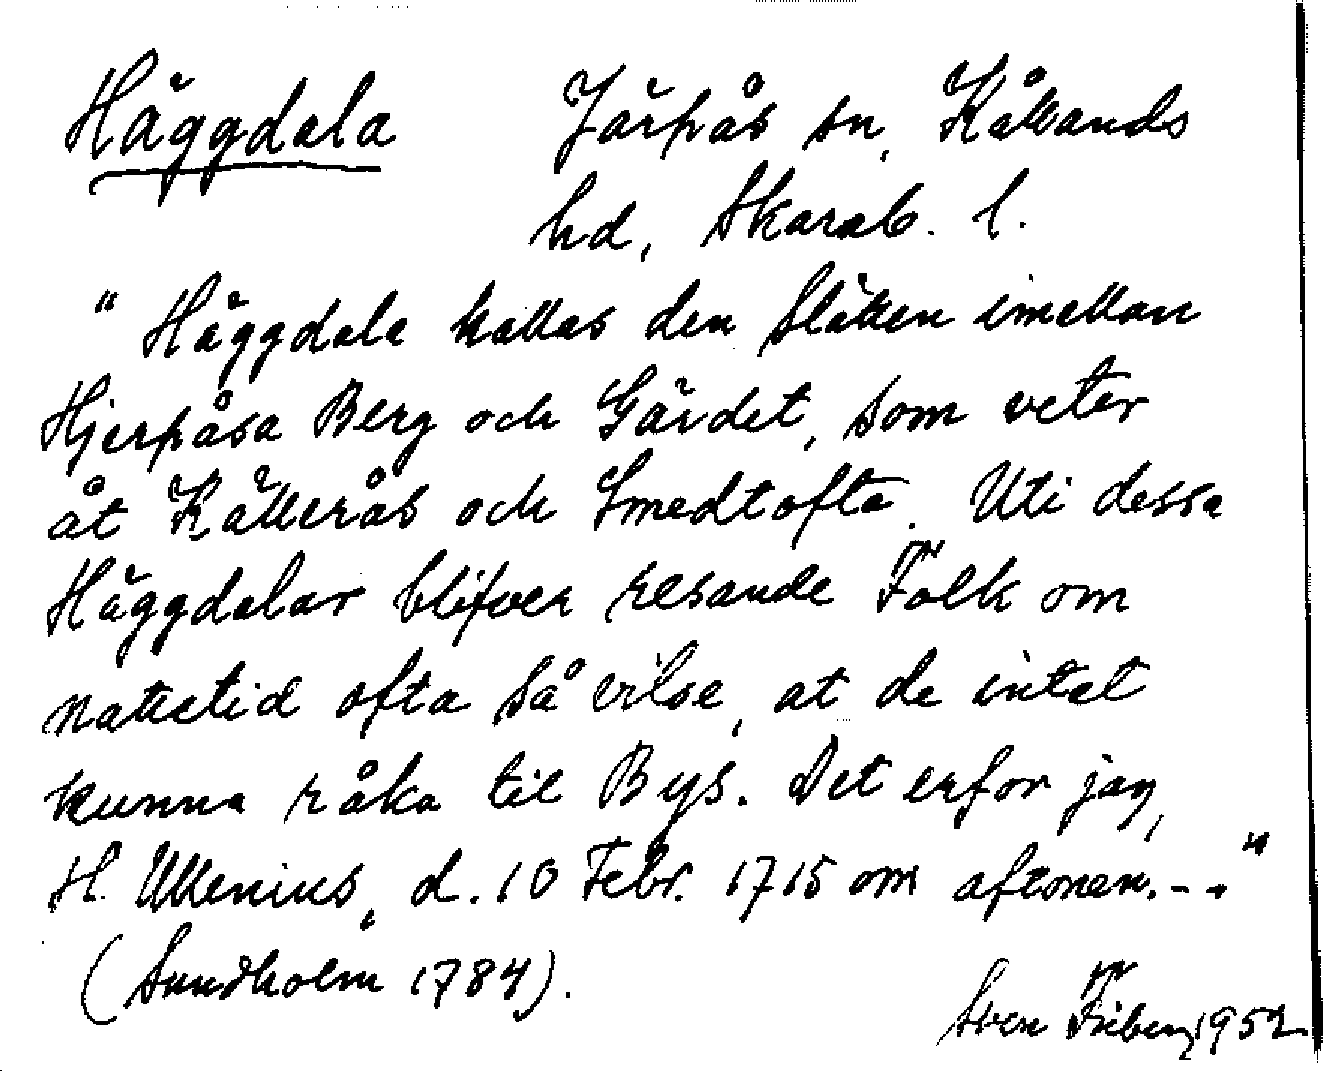 Häggdala Järpås sn, Kållands
hd, Skarab. l.
"Häggdala kallas den slätten imellan
Hjerpåsa Berg och Gärdet, som veter
åt Källerås och Smedtofta. Uti dessa
Häggdalar blifver resande Folk om
nattetid ofta så vilse, at de intet
kunna råka til Bys. Det erfor jag,
H. Ullenius, d. 10 Febr. 1715 om aftonen. - ."
(Sundholm 1784).
Sven Friberg 1952